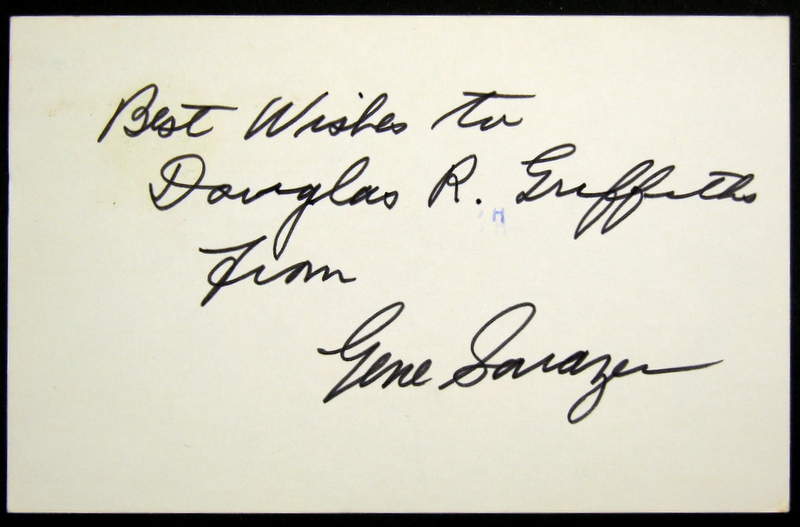 Best Wishes to
Douglas R. Griffiths
H
from
Gene Sarazen